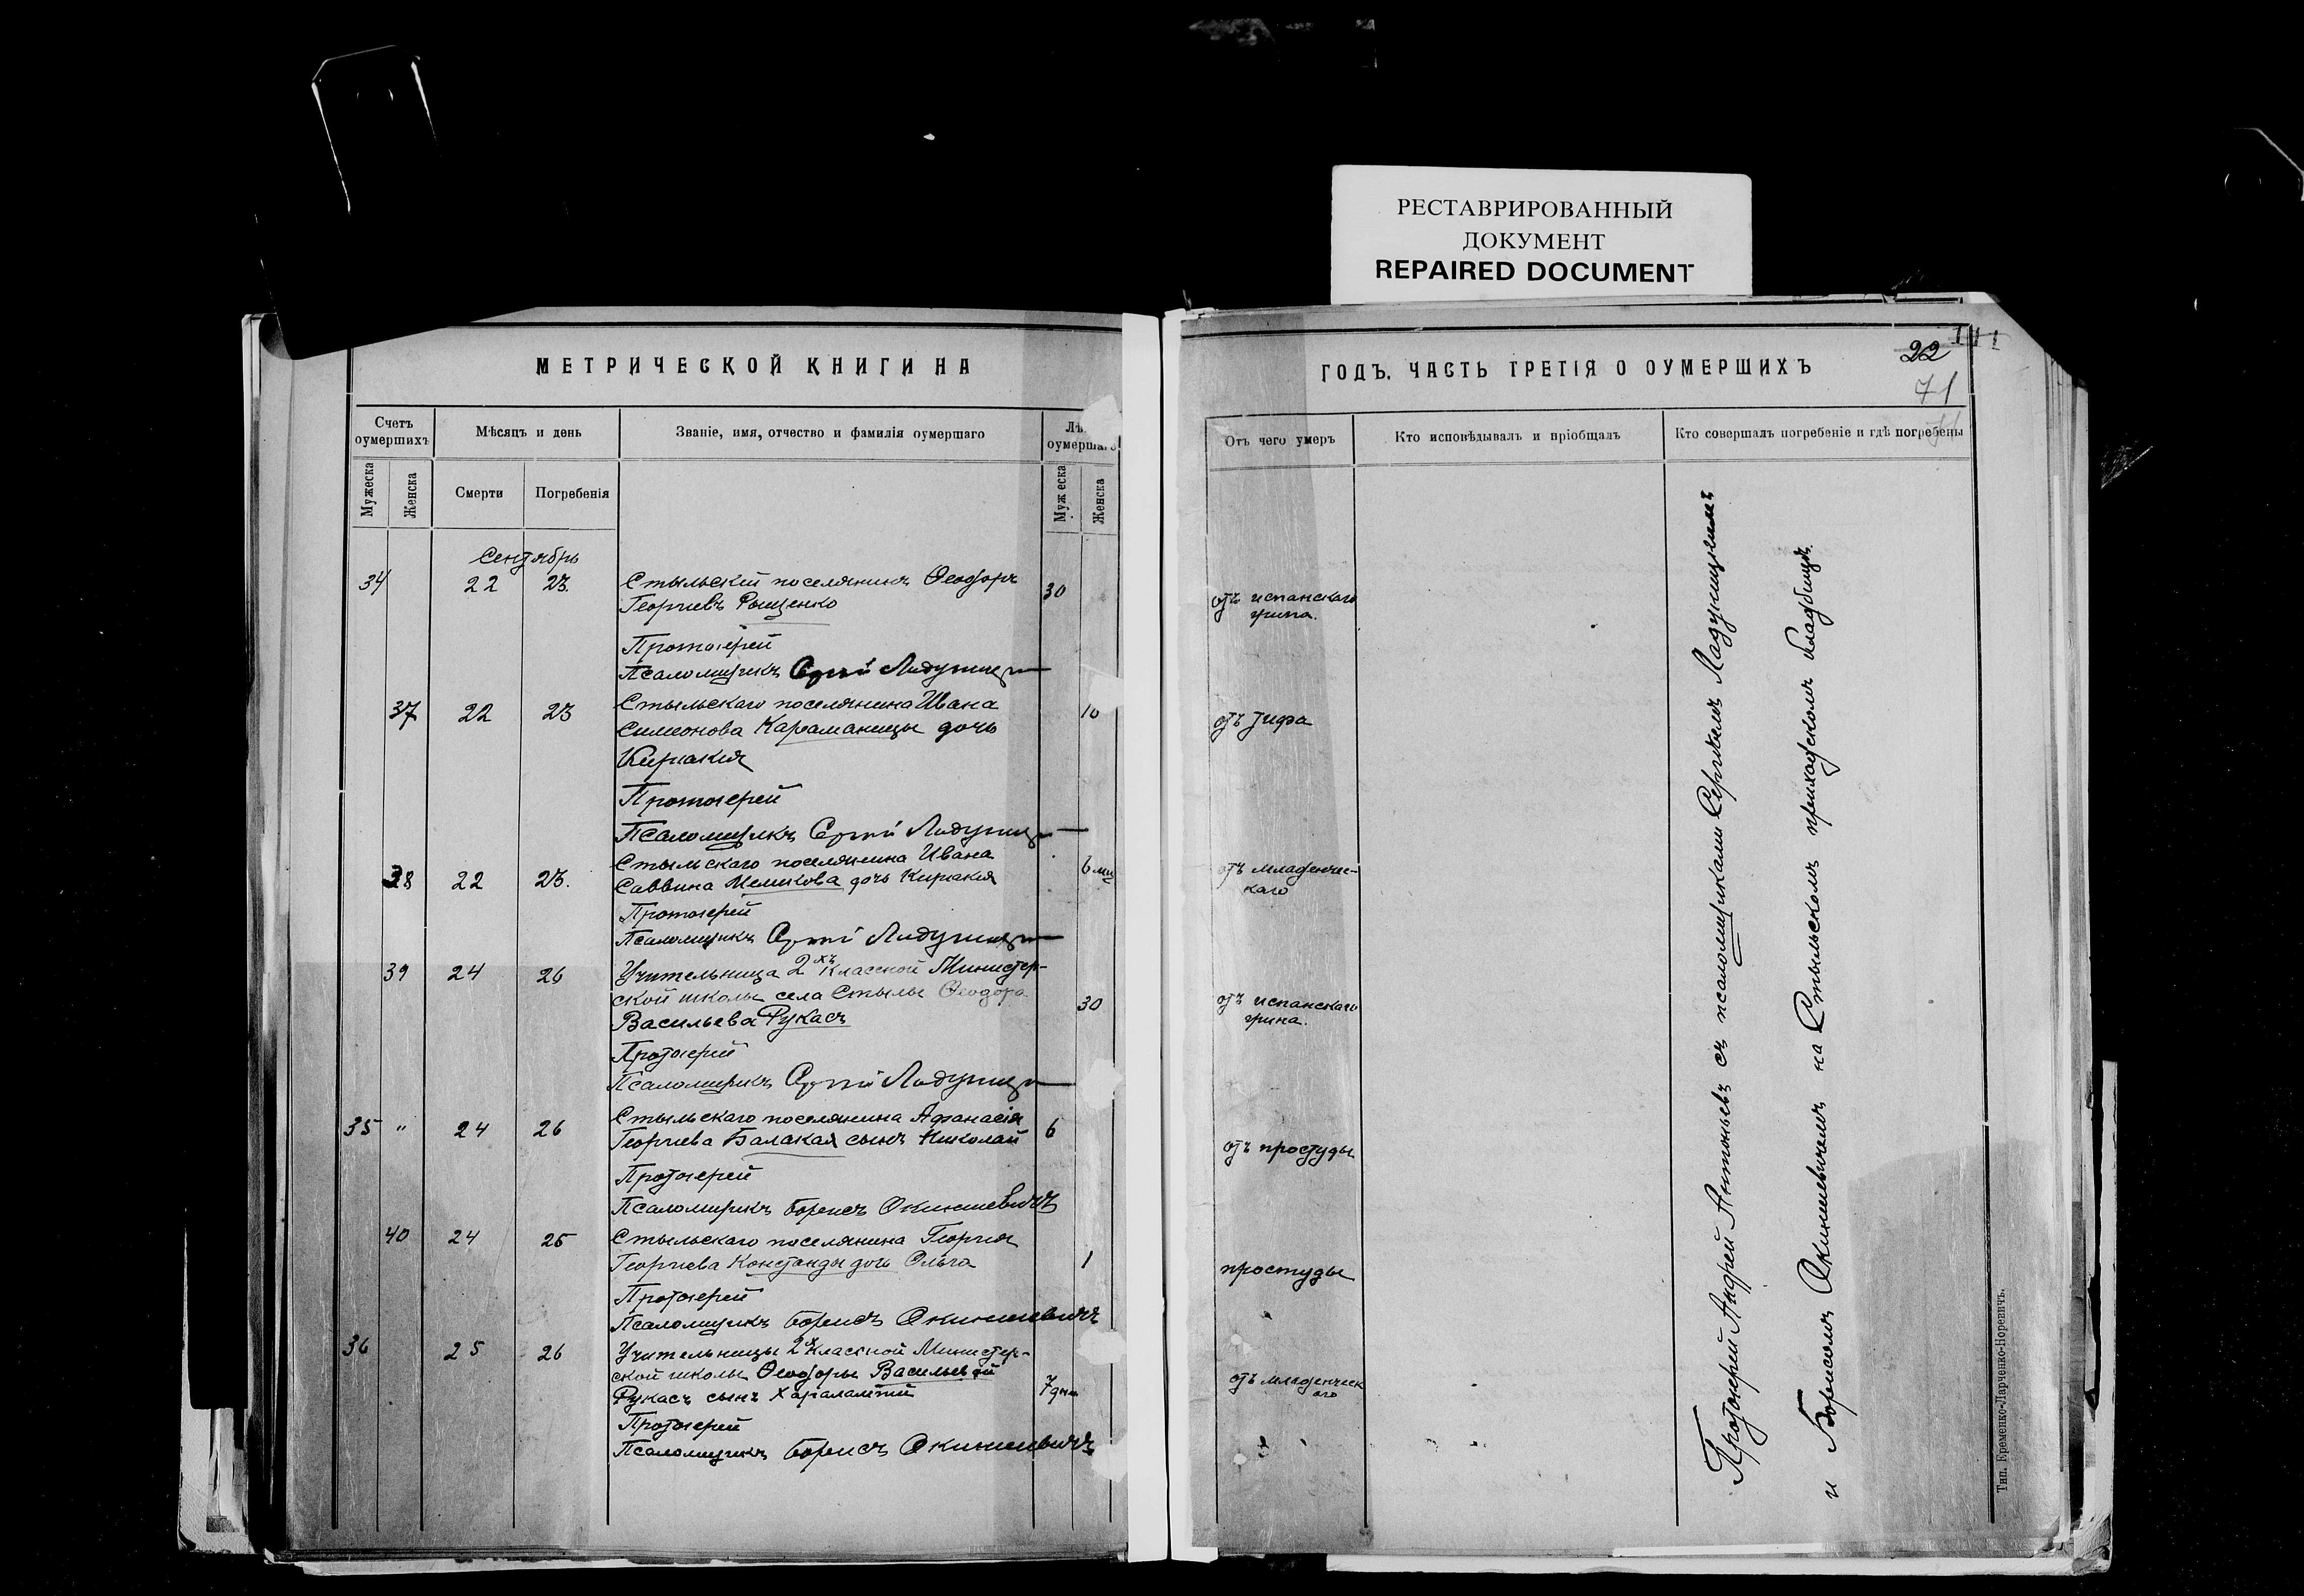 РЕСТАВРИРОВАННЫЙ
ДОКУМЕНТ
REPAIRED DOCUMENT
МЕТРИЧЕСКОЙ КНИГИ НА
Счетъ оумершихъ
Мѣсяцъ и день
Званіе, имя, отчество и фамилія оумершаго
оумершаго
Мужеска
Женска
Смерти
Погребенія
Мужеска
Женска
Сентябрь
34 22 23. Стыльскій поселянинъ Ѳеодоръ 30
Георгіевъ
Протоіерей
Псаломщикъ Сергій
37 22 23 Стыльскаго поселянина Ивана 10
Симеонова Караманицы дочь
Киріакія
Протоіерей
Псаломщикъ Сергій
Стыльскаго поселянина Ивана
38 22 23. Саввина Меликова дочь Киріакія 6 мц
Протоіерей
Псаломщикъ Сергій
39 24 26 Учительница 2хъ Классной Министер-
ской школы села Стылы Ѳеодора 30
Васильева Рукасъ
Протоіерей
Псаломщикъ Сергій
Стыльскаго поселянина Афанасія
35 " 24 26 Георгіева Балакая сынъ Николай 6
Протоіерей
Псаломщикъ Борисъ Окиншевичъ
40 24 25 Стыльскаго поселянина Георгія
Георгіева Констанды дочь Ольга 1
Протоіерей
Псаломщикъ Борисъ Окиншевичъ
36 25 26 Учительницы 2х Классной Министер-
ской школы Ѳеодоры Васильевой
Рукасъ сынъ Харалампій 7 дн
Протоіерей
Псаломщикъ Борисъ Окиншевичъ
ГОДЪ. ЧАСТЬ ТРЕТІЯ О ОУМЕРШИХЪ
22
71
Отъ чего умеръ
Кто исповѣдывалъ и пріобщалъ
Кто совершалъ погребеніе и гдѣ погребены
отъ испанскаго
гриппа.
отъ тифа
отъ младенчес-
каго
отъ испанскаго
гриппа.
отъ простуды
простуды
отъ младенческ
ого
Протоіерей Андрей Антоньевъ съ псаломщиками Сергіемъ
и Борисомъ Окиншевичемъ на Стыльскомъ приходскомъ кладбищѣ.
Тип. Еременко-Ларченко-Норевичъ.